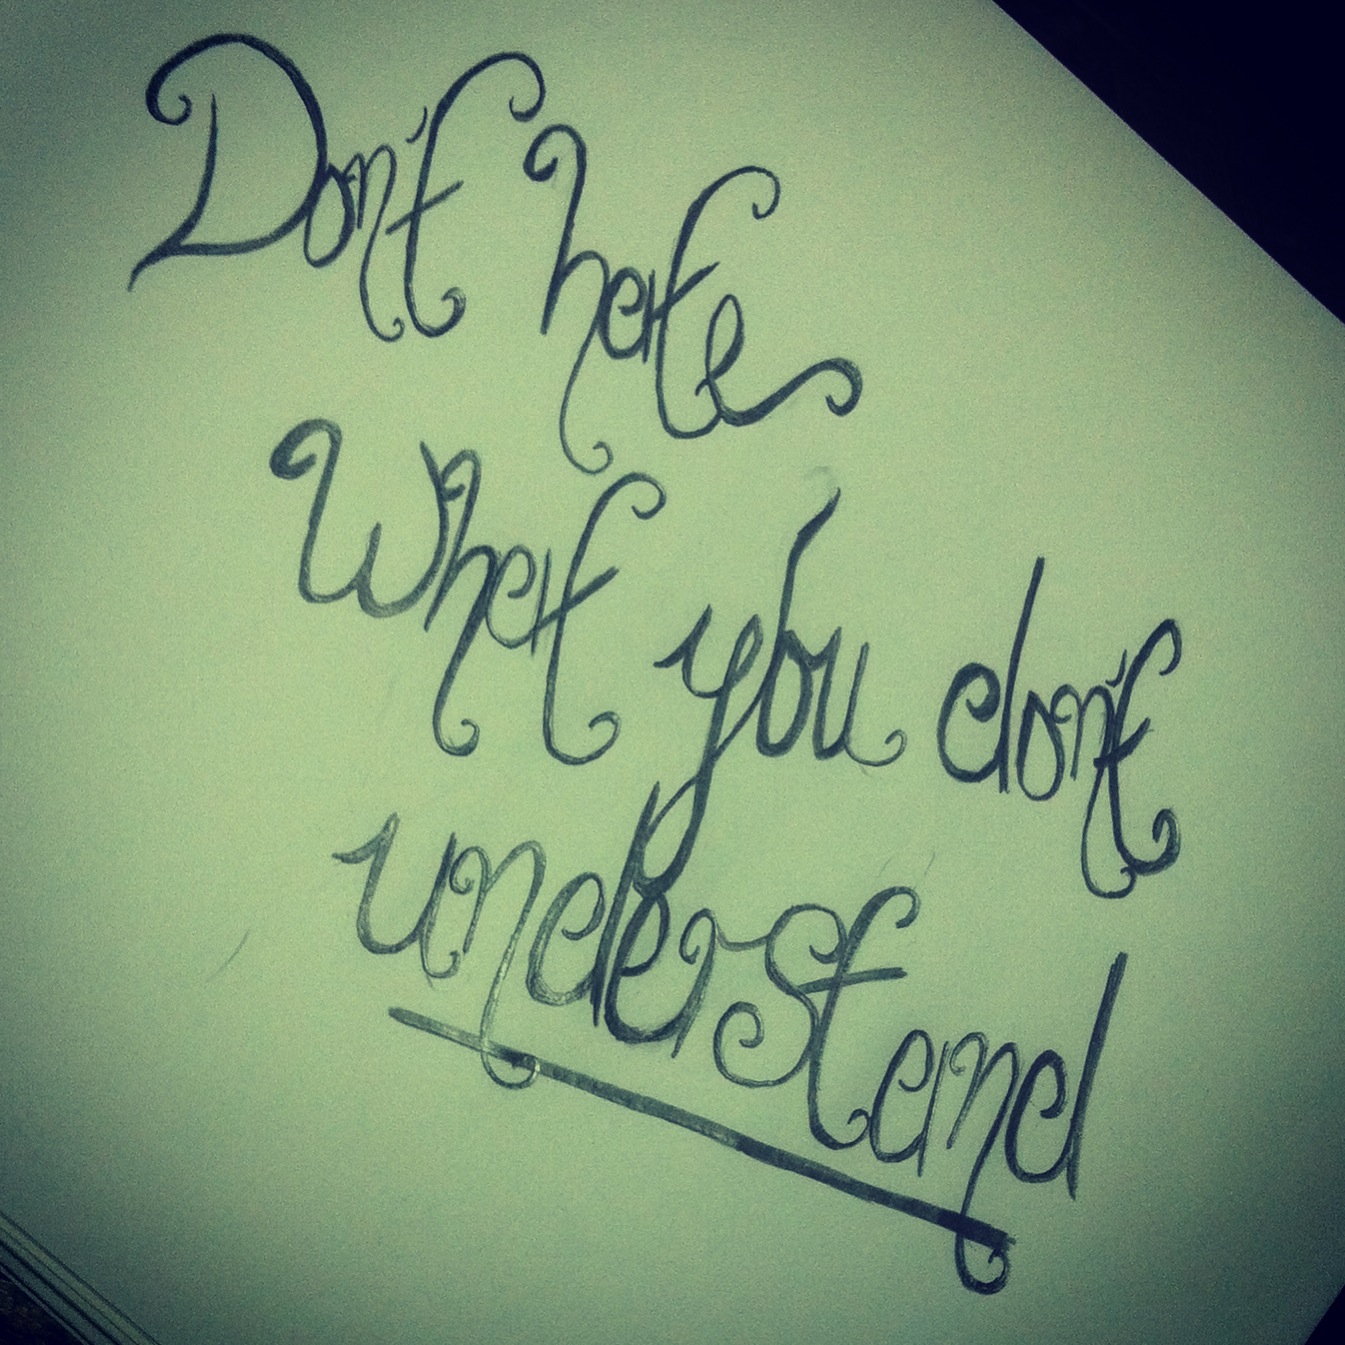 Don't hate
What you don't
understand